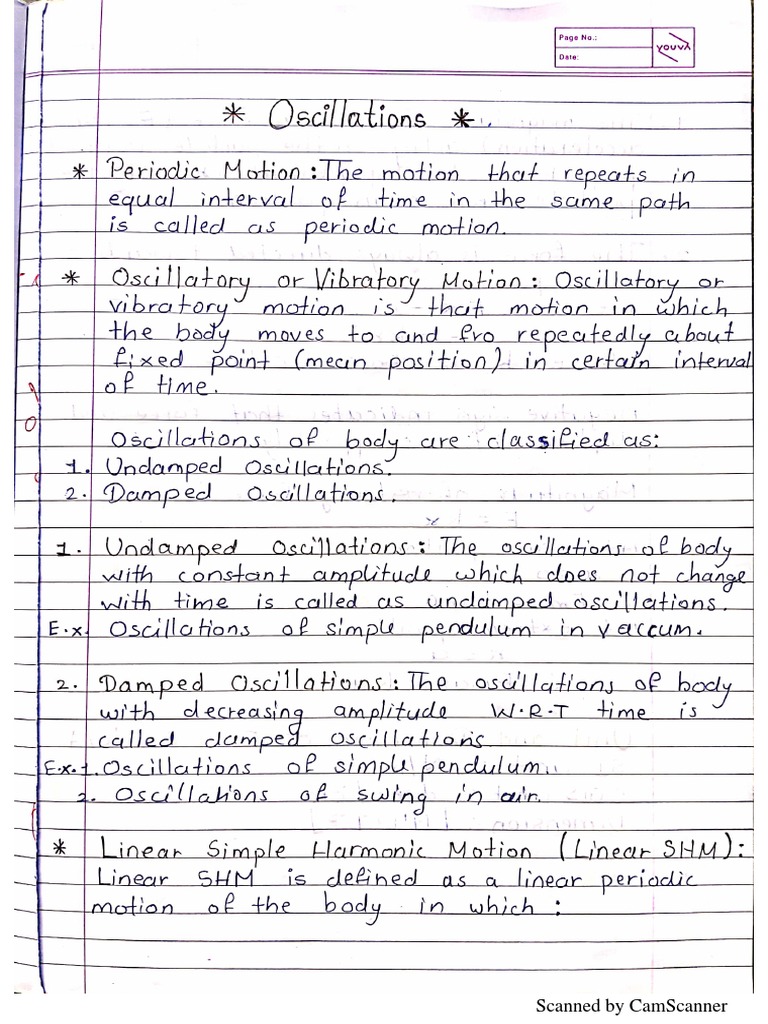 Page No.:
Date:
YOUVA
* Oscillations *
* Periodic Motion : The motion that repeats in
equal interval of time in the same path
is called as periodic motion.
* Oscillatory or Vibratory Motion : Oscillatory or
vibratory motion is that motion in which
the body moves to and fro repeatedly about
fixed point (mean position) in certain interval
of time.
Oscillations of body are classified as:
1. Undamped Oscillations.
2. Damped Oscillations.
1. Undamped Oscillations : The oscillations of body
with constant amplitude which does not change
with time is called as undamped oscillations.
E.x. Oscillations of simple pendulum in vaccum.
2. Damped Oscillations : The oscillations of body
with decreasing amplitude W.R.T time is
called damped oscillations
E.x. 1. Oscillations of simple pendulum.
2. Oscillations of swing in air.
* Linear Simple Harmonic Motion (Linear SHM) :
Linear SHM is defined as a linear periodic
motion of the body in which :
Scanned by CamScanner